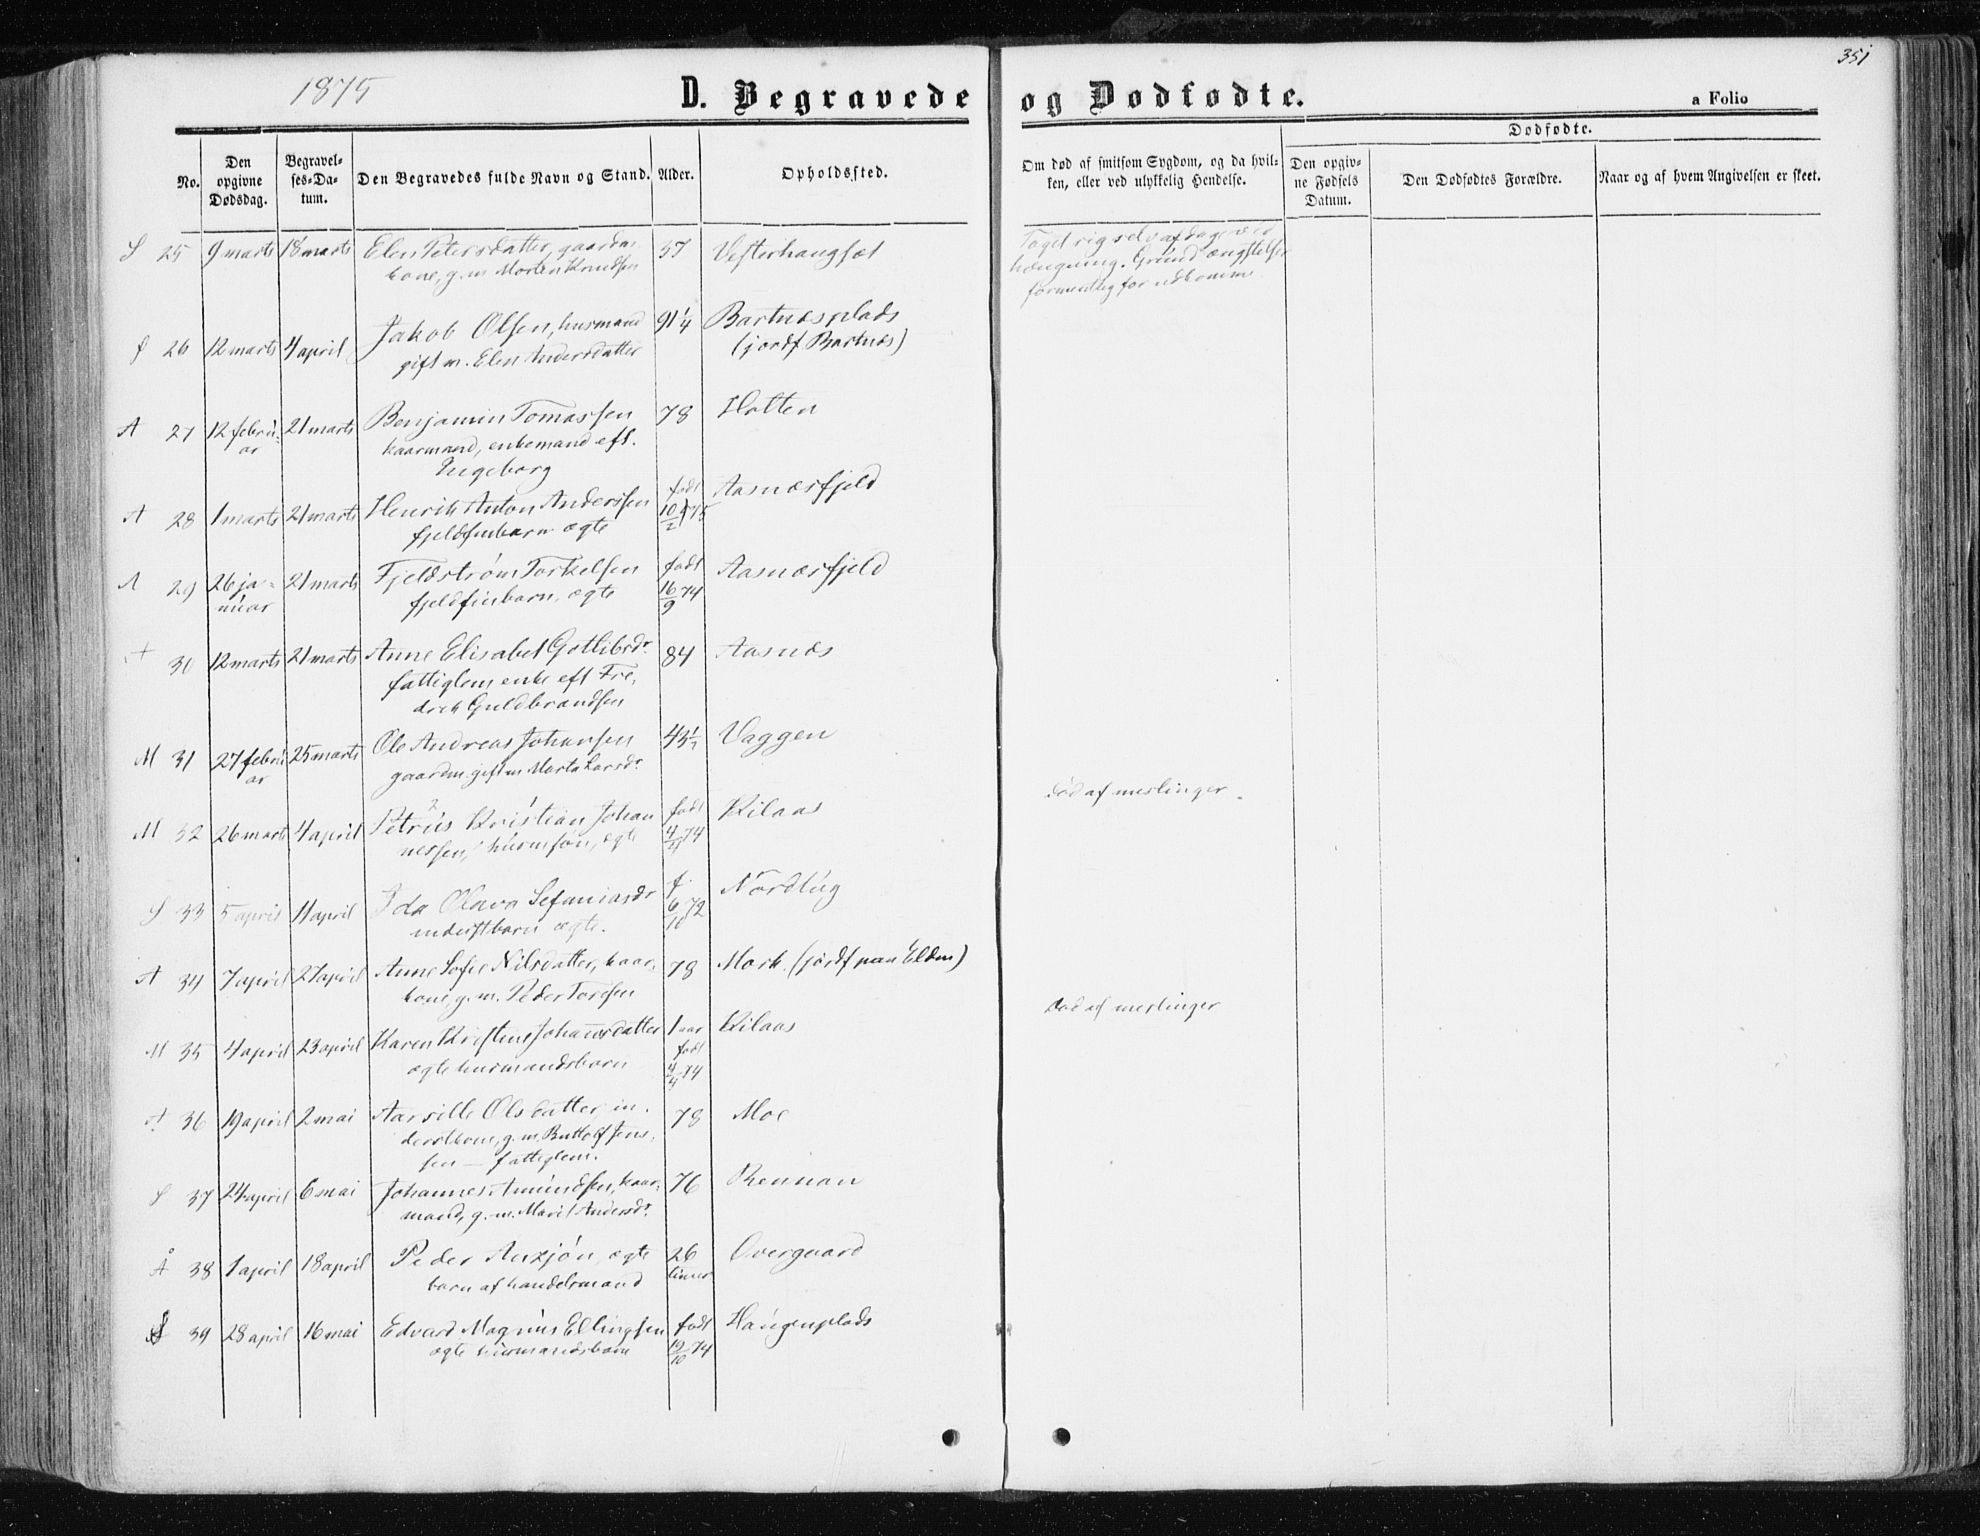 1875
D. Begravede og Dødfødte.
351
a Folio
Dødfødte.
No.
Den opgivne Dødsdag.
Begravelses-Datum.
Den Begravedes fulde Navn og Stand.
Alder.
Opholdssted.
Om død af smitsom Sygdom, og da hvilken, eller ved ulykkelig Hendelse.
Den opgivne Fødsels Datum.
Den Dødfødtes Forældre.
Naar og af hvem Angivelsen er skeet.
S 25 9 marts 18 marts Elen Petersdatter, gaardm. 57 Vesterhaugsæt Taget sig selv af dage ved
kone, g. m. Morten Knudsen hængning. Grund ængstelse
formentlig for udkomme
S 26 12 marts 4 april Jakob Olsen, husmand 91 1/4 Bartnæsplads
gift m. Elen Andersdatter (jordf Bartnæs)
A 27 12 februar 21 marts Benjamin Tomassen 78 Holten
kaarmand, enkemand eft.
Ingeborg
A 28 1 marts 21 marts Henrik Anton Anderssen født 10/2 75 Aasnæsfjeld
fjeldfinbarn ægte
A 29 26 januar 21 marts Fjeldstrøm Torkelsen født 16/9 74 Aasnæsfjeld
fjeldfinbarn, ægte
A 30 12 marts 21 marts Anne Elisabet Gotlibsdr 84 Aasnæs
fattiglem enke eft Fre,
drik Guldbrandsen
M 31 27 februar 25 marts Ole Andreas Johansen 43 1/2 Vaggen
gaardm. gift m Marta Larsdr
M 32 26 marts 4 april Petrus Kristian Johan født 4/4 74 Kilaas død af meslinger
nessen, husmsøn, ægte
S 33 5 april 11 april Ida Olava Sefaniasdr f. 6/10 72 Nordlug
inderstbarn ægte.
A 34 7 april 27 april Anne Sofie Nilsdatter, kaar, 78 Mork. (jordf paa Elden)
kone, g. m. Peder Toresen
M 35 4 april 23 april Karen Kristine Johansdatter 1 aar født 4/4 74 Kilaas død af meslinger
ægte husmandsbarn
A 36 19 april 2 mai Aarsille Olsdatter, in, 78 Moe
derstkone, g. m. Buttolf Jens,
sen — fattiglem.
S 37 24 april 6 mai Johannes Amundsen, kaar, 76 Rennan
mand, g. m. Marit Andersdr.
Å 38 1 april 18 april Peder Anzjøn, ægte 26 timer Overgaard
barn af handelsmand
S 39 28 april 16 mai Edvard Magnus Ellingsen født 19/10 74 Haugenplads
ægte husmandsbarn